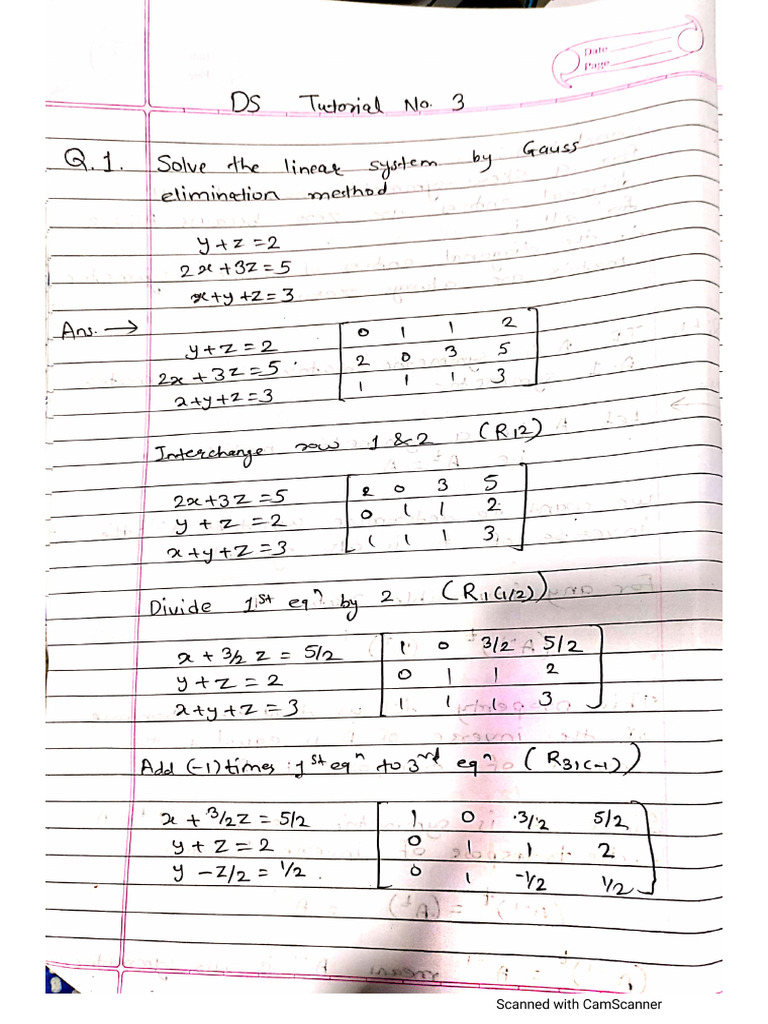 Date
Page
DS Tutorial No. 3
Q.1. Solve the linear system by Gauss
elimination method
y + z = 2
2x + 3z = 5
x + y + z = 3
Ans. →
y + z = 2 [ 0 1 1 2
2x + 3z = 5 2 0 3 5
x + y + z = 3 1 1 1 3 ]
Interchange row 1 & 2 (R12)
2x + 3z = 5 [ 2 0 3 5
y + z = 2 0 1 1 2
x + y + z = 3 1 1 1 3 ]
Divide 1st eqn by 2 (R1(1/2))
x + 3/2 z = 5/2 [ 1 0 3/2 5/2
y + z = 2 0 1 1 2
x + y + z = 3 1 1 1 3 ]
Add (-1) times 1st eqn to 3rd eqn (R31(-1))
x + 3/2 z = 5/2 [ 1 0 3/2 5/2
y + z = 2 0 1 1 2
y - z/2 = 1/2 0 1 -1/2 1/2 ]
Scanned with CamScanner